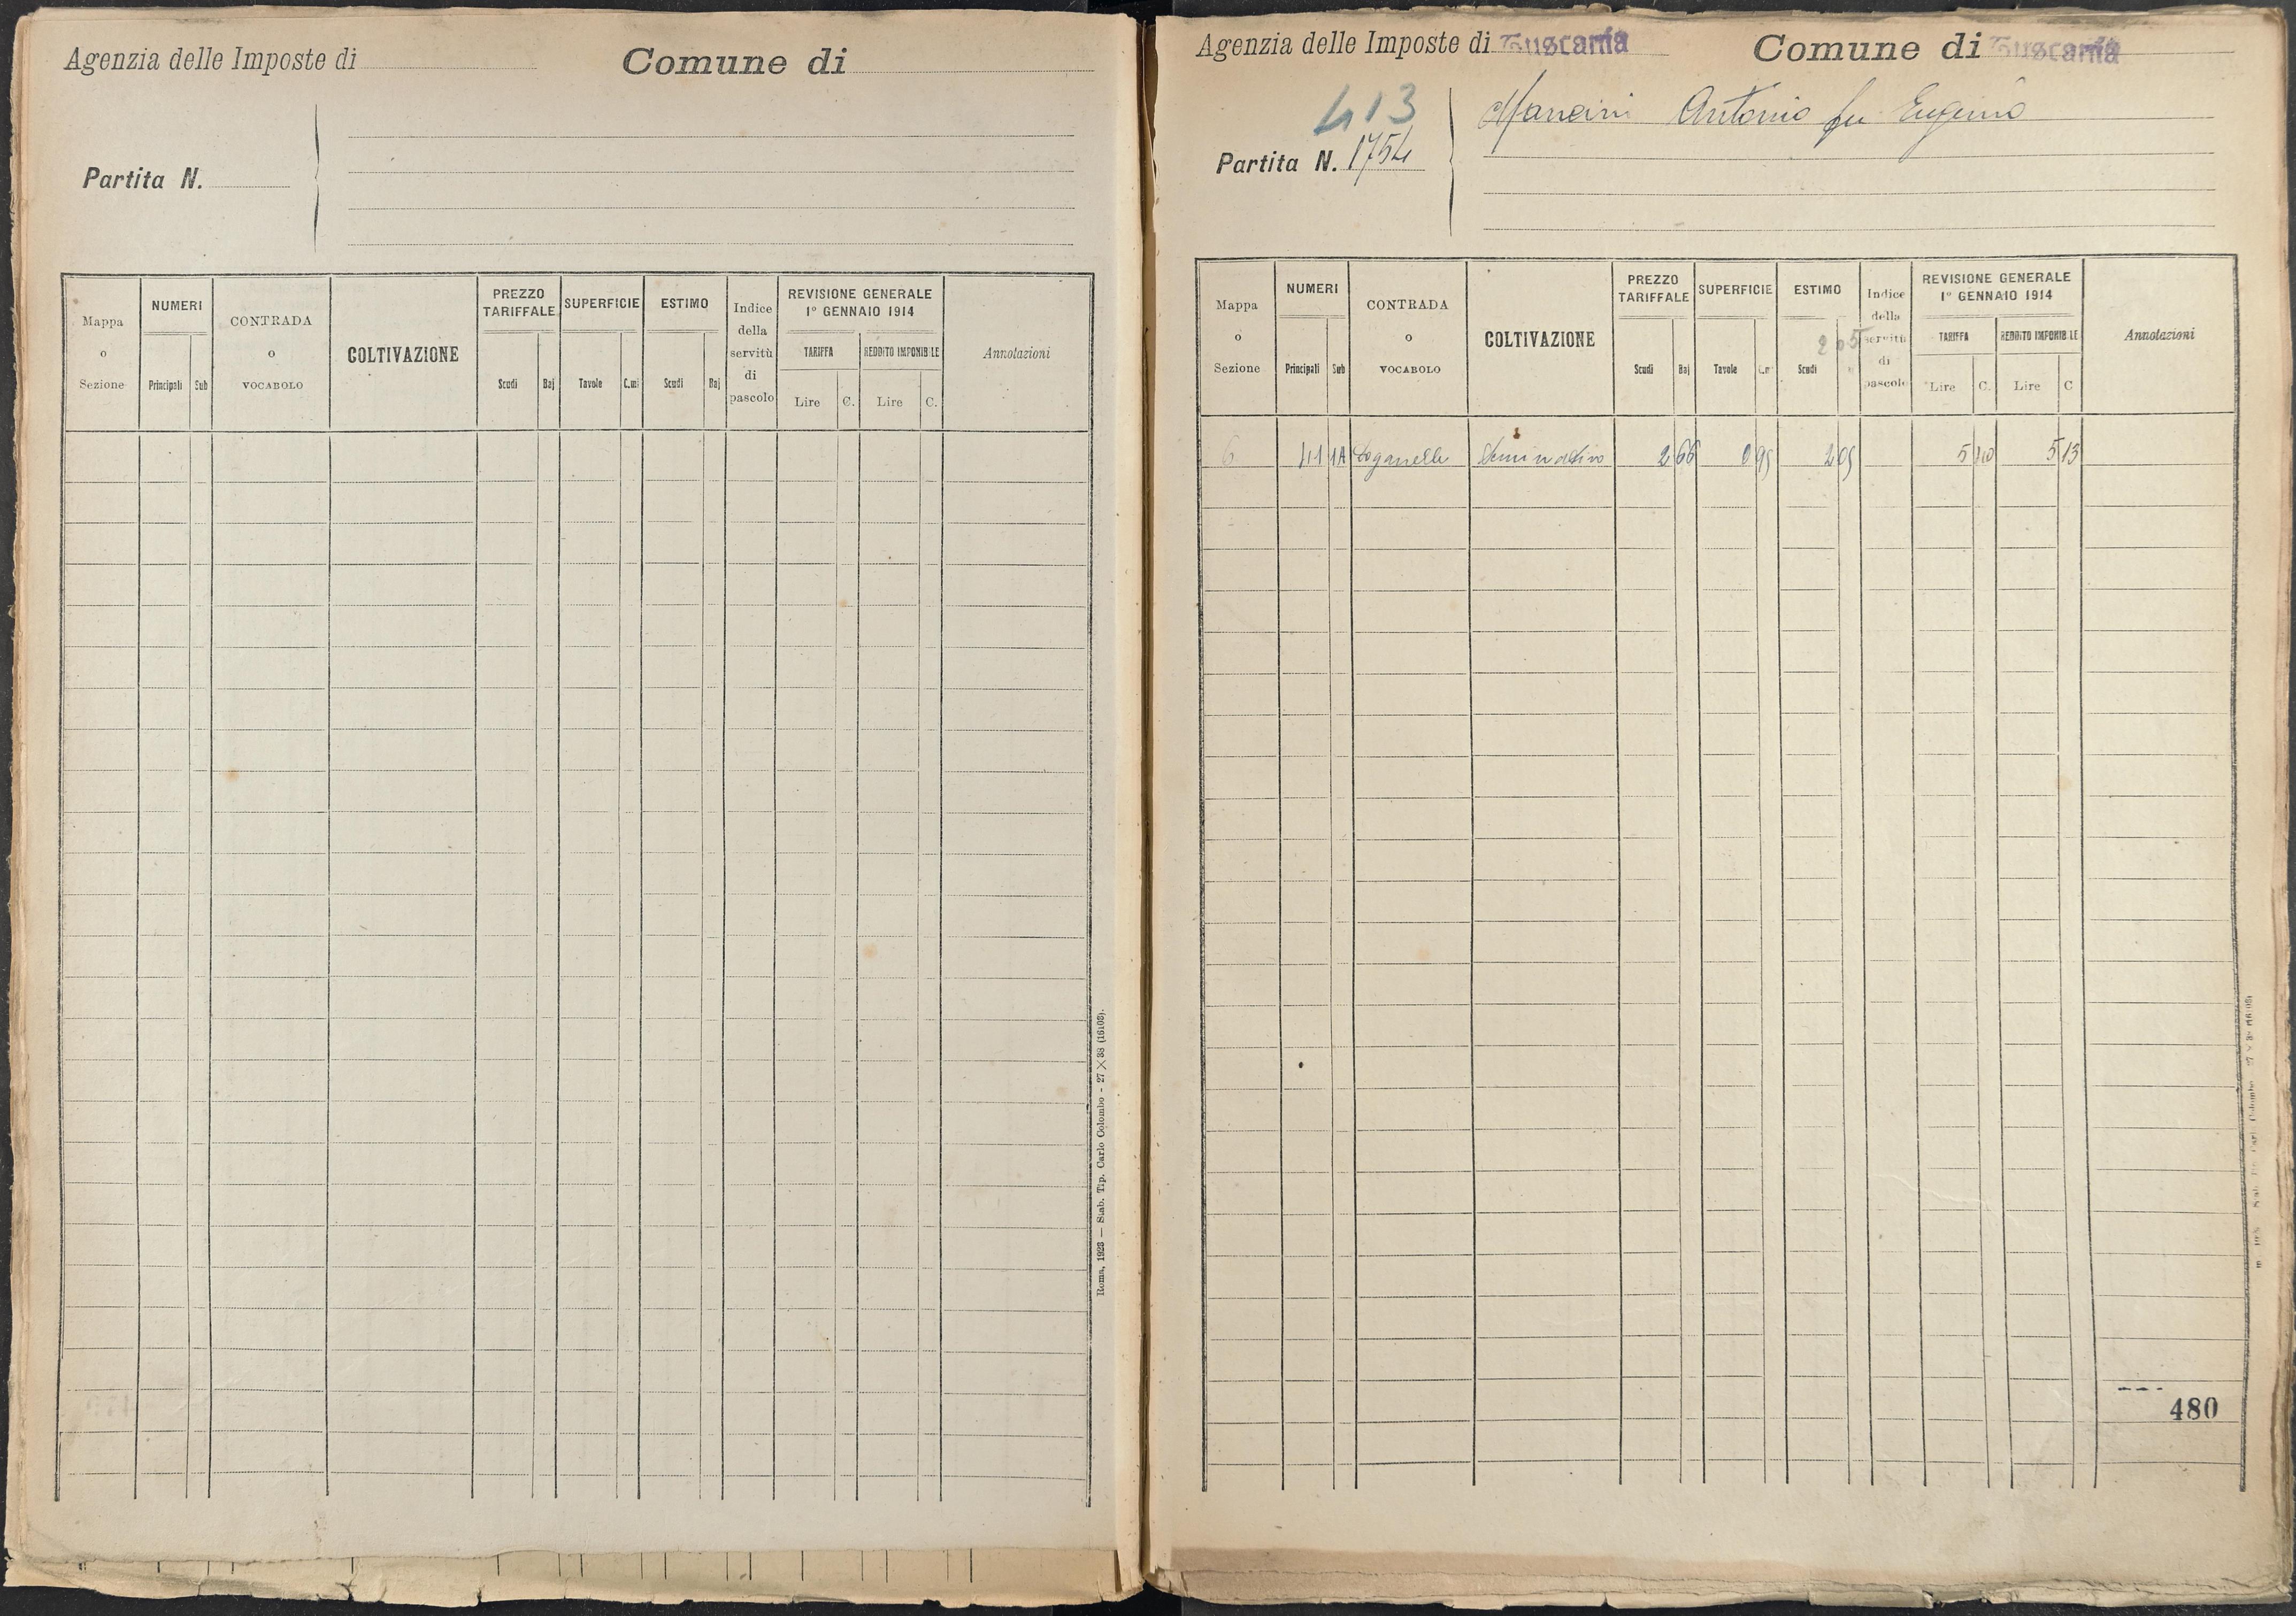 Agenzia delle Imposte di
Comune di
Partita N.
Mappa o Sezione
NUMERI
Principali
Sub
CONTRADA o VOCABOLO
COLTIVAZIONE
PREZZO TARIFFALE
Scudi
Baj
SUPERFICIE
Tavole
C.mi
ESTIMO
Scudi
Baj
Indice della servitù di pascolo
REVISIONE GENERALE
1° GENNAIO 1914
TARIFFA
REDDITO IMPONIBILE
Lire
C.
Lire
C.
Annotazioni
Roma, 1923 — Stab. Tip. Carlo Colombo - 27 × 38 (16108).
Agenzia delle Imposte di Tuscania
Comune di Tuscania
413
Partita N. 1754
Mancini Antonio fu Eugenio
Mappa o Sezione
NUMERI
Principali
Sub
CONTRADA o VOCABOLO
COLTIVAZIONE
PREZZO TARIFFALE
Scudi
Baj
SUPERFICIE
Tavole
ESTIMO
205
Scudi
Indice della servitù di pascolo
REVISIONE GENERALE
1° GENNAIO 1914
TARIFFA
REDDITO IMPONIBILE
Lire
C.
Lire
C
Annotazioni
6 411 1A Doganelle Seminativo 2 66 0 95 2 05 5 40 5 13
480